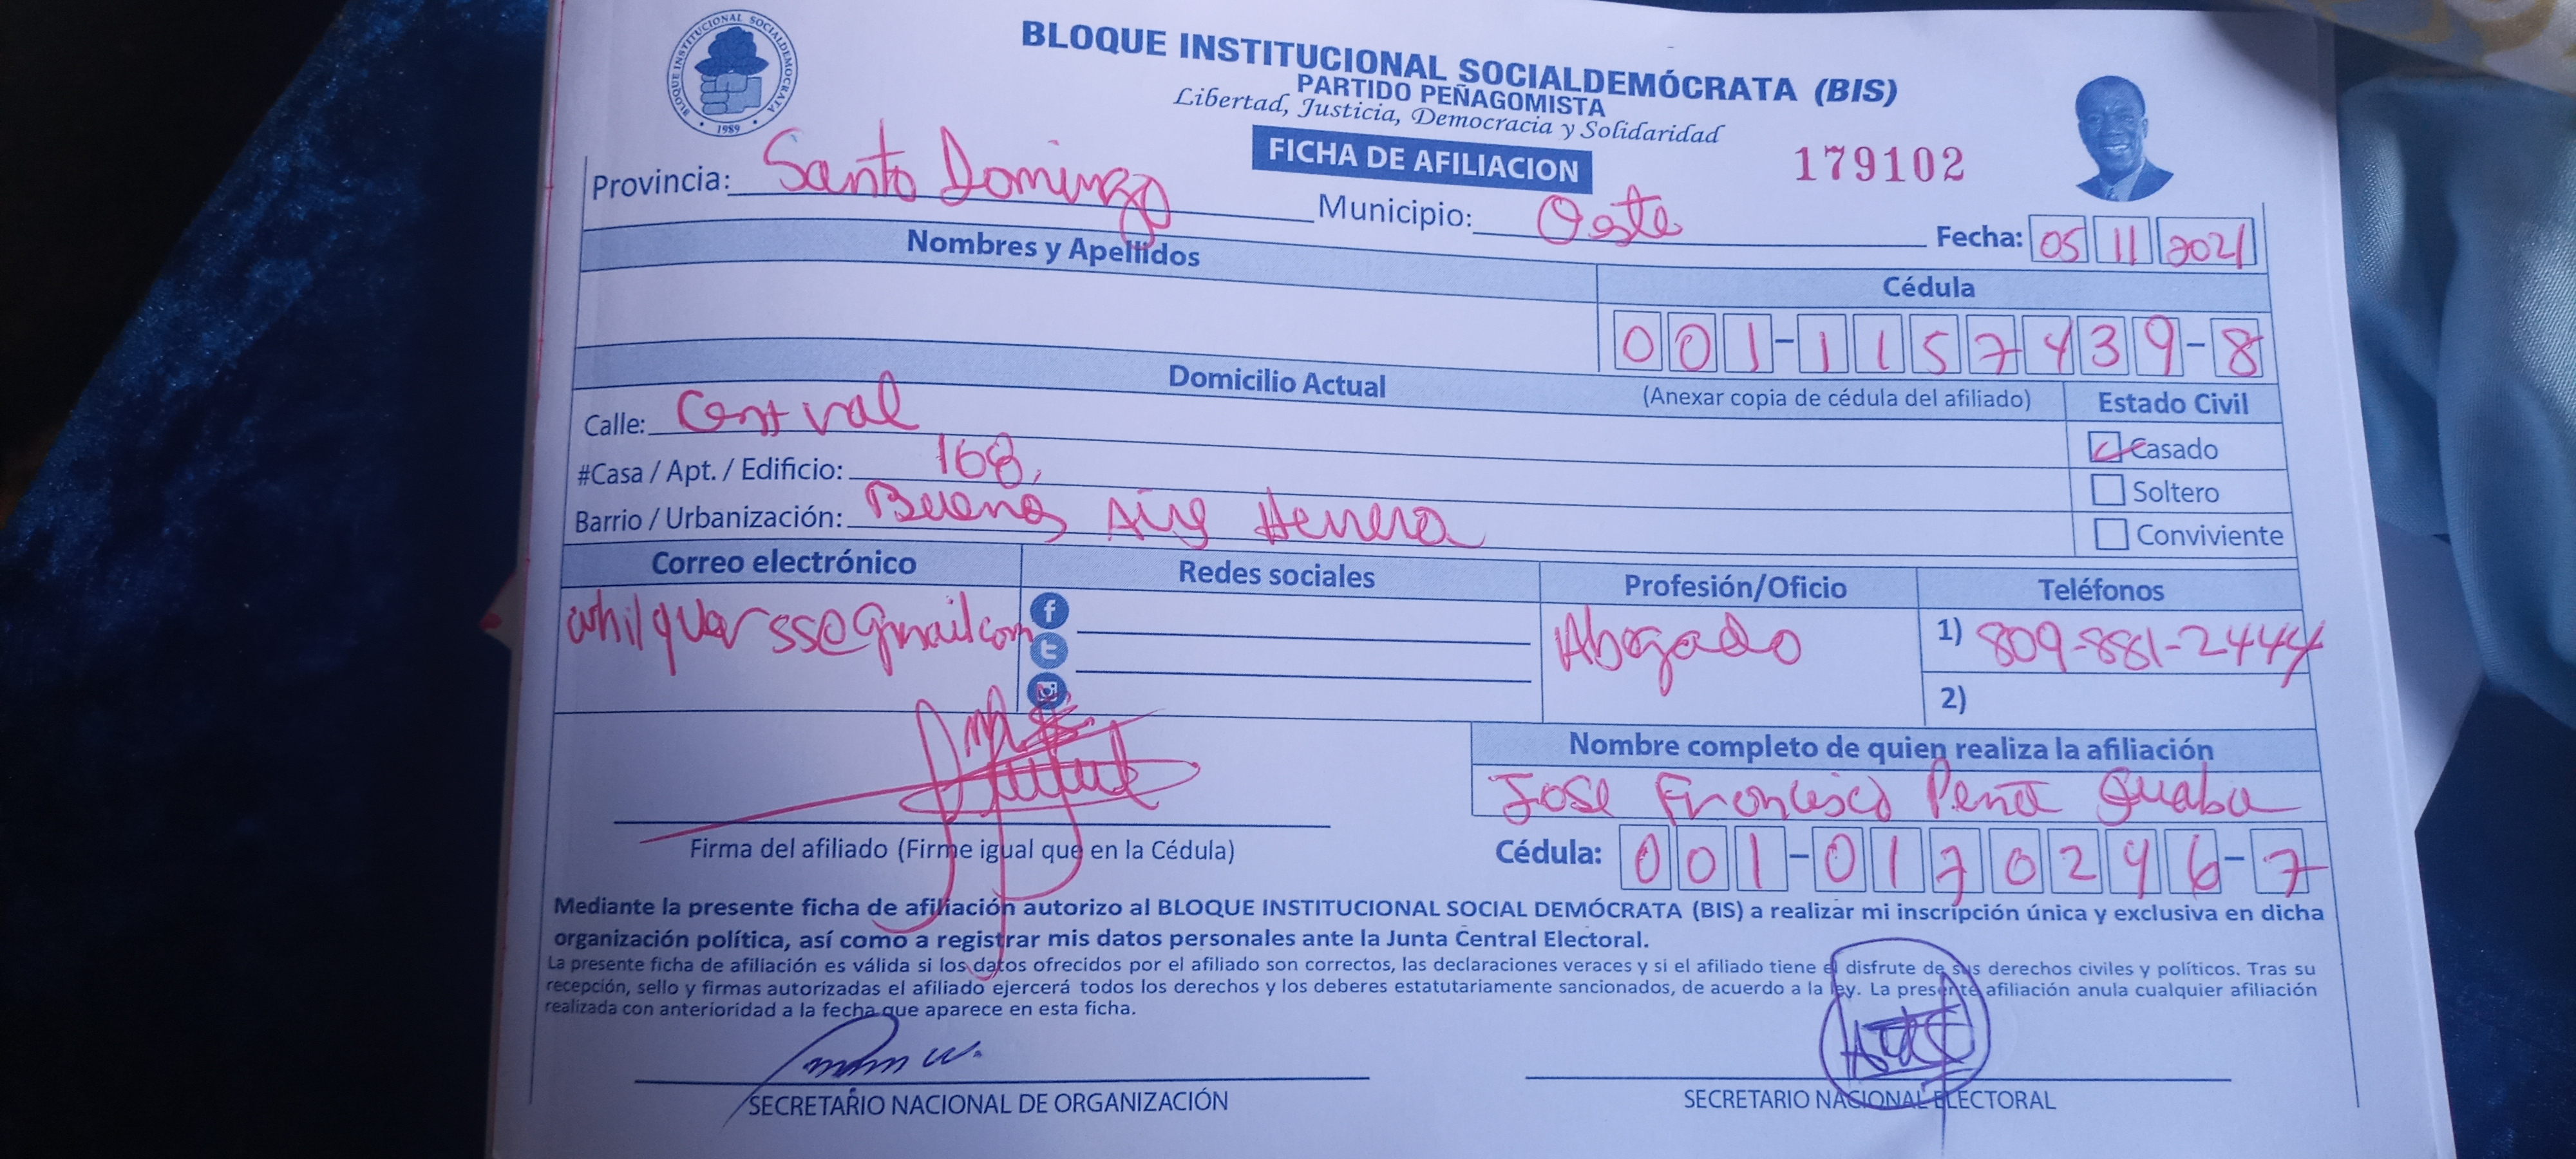 BLOQUE INSTITUCIONAL SOCIALDEMOCRATA
1989
BLOQUE INSTITUCIONAL SOCIALDEMÓCRATA (BIS)
PARTIDO PEÑAGOMISTA
Libertad, Justicia, Democracia y Solidaridad
FICHA DE AFILIACION
179102
Provincia: Santo Domingo Municipio: Oeste Fecha: 05 11 2021
Nombres y Apellidos
Cédula
001-1157439-8
Domicilio Actual
(Anexar copia de cédula del afiliado)
Estado Civil
Calle: Central
Casado
#Casa / Apt. / Edificio: 168,
Soltero
Barrio / Urbanización: Buenos Aires Herrera
Conviviente
Correo electrónico Redes sociales Profesión/Oficio Teléfonos
@gmail.com Abogado 1) 809-881-2444
2)
Nombre completo de quien realiza la afiliación
Jose Francisco Peña Guaba
Firma del afiliado (Firme igual que en la Cédula)
Cédula: 001-0170246-7
Mediante la presente ficha de afiliación autorizo al BLOQUE INSTITUCIONAL SOCIAL DEMÓCRATA (BIS) a realizar mi inscripción única y exclusiva en dicha
organización política, así como a registrar mis datos personales ante la Junta Central Electoral.
La presente ficha de afiliación es válida si los datos ofrecidos por el afiliado son correctos, las declaraciones veraces y si el afiliado tiene el disfrute de sus derechos civiles y políticos. Tras su
recepción, sello y firmas autorizadas el afiliado ejercerá todos los derechos y los deberes estatutariamente sancionados, de acuerdo a la ley. La presente afiliación anula cualquier afiliación
realizada con anterioridad a la fecha que aparece en esta ficha.
SECRETARIO NACIONAL DE ORGANIZACIÓN
SECRETARIO NACIONAL ELECTORAL